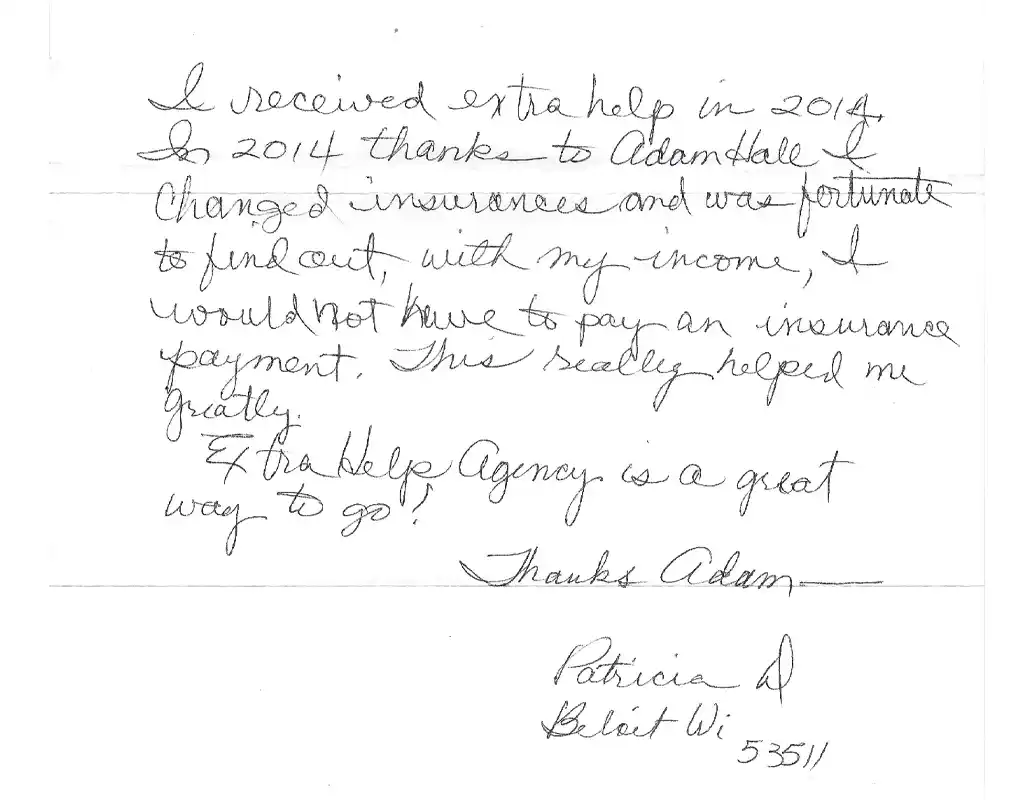 I received extra help in 2014.
In 2014 thanks to Adam Hall I
changed insurances and was fortunate
to find out, with my income, I
would not have to pay an insurance
payment. This really helped me
greatly.
Extra Help Agency is a great
way to go!
Thanks Adam—
Patricia D
Beloit Wi
53511